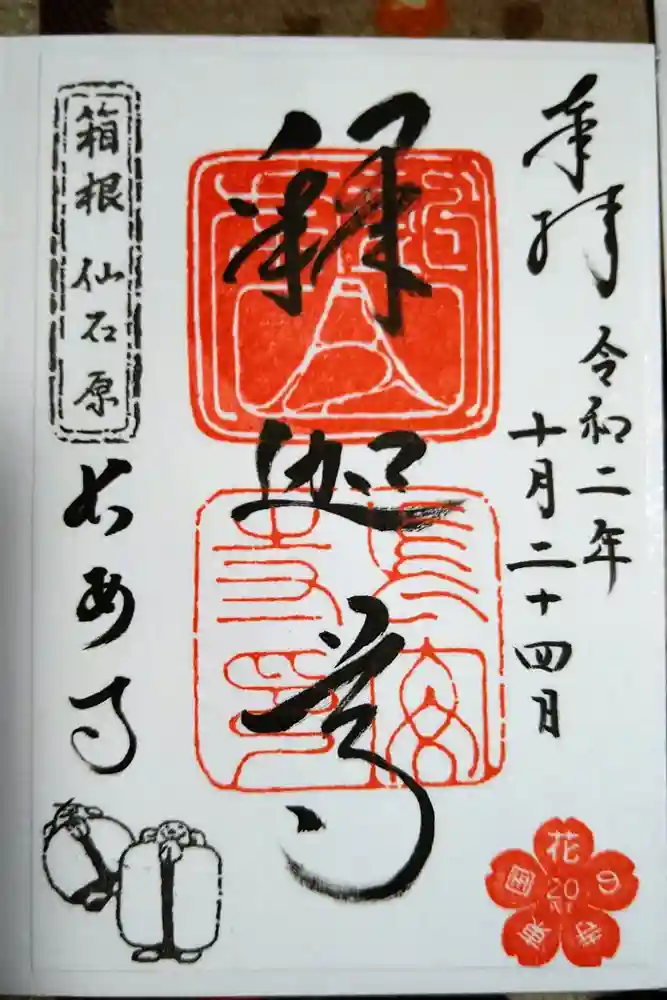 奉拝
令和二年
十月二十四日
釋
迦
尊
長安
寺印
箱根 仙石原
長安寺
東国花の寺
20